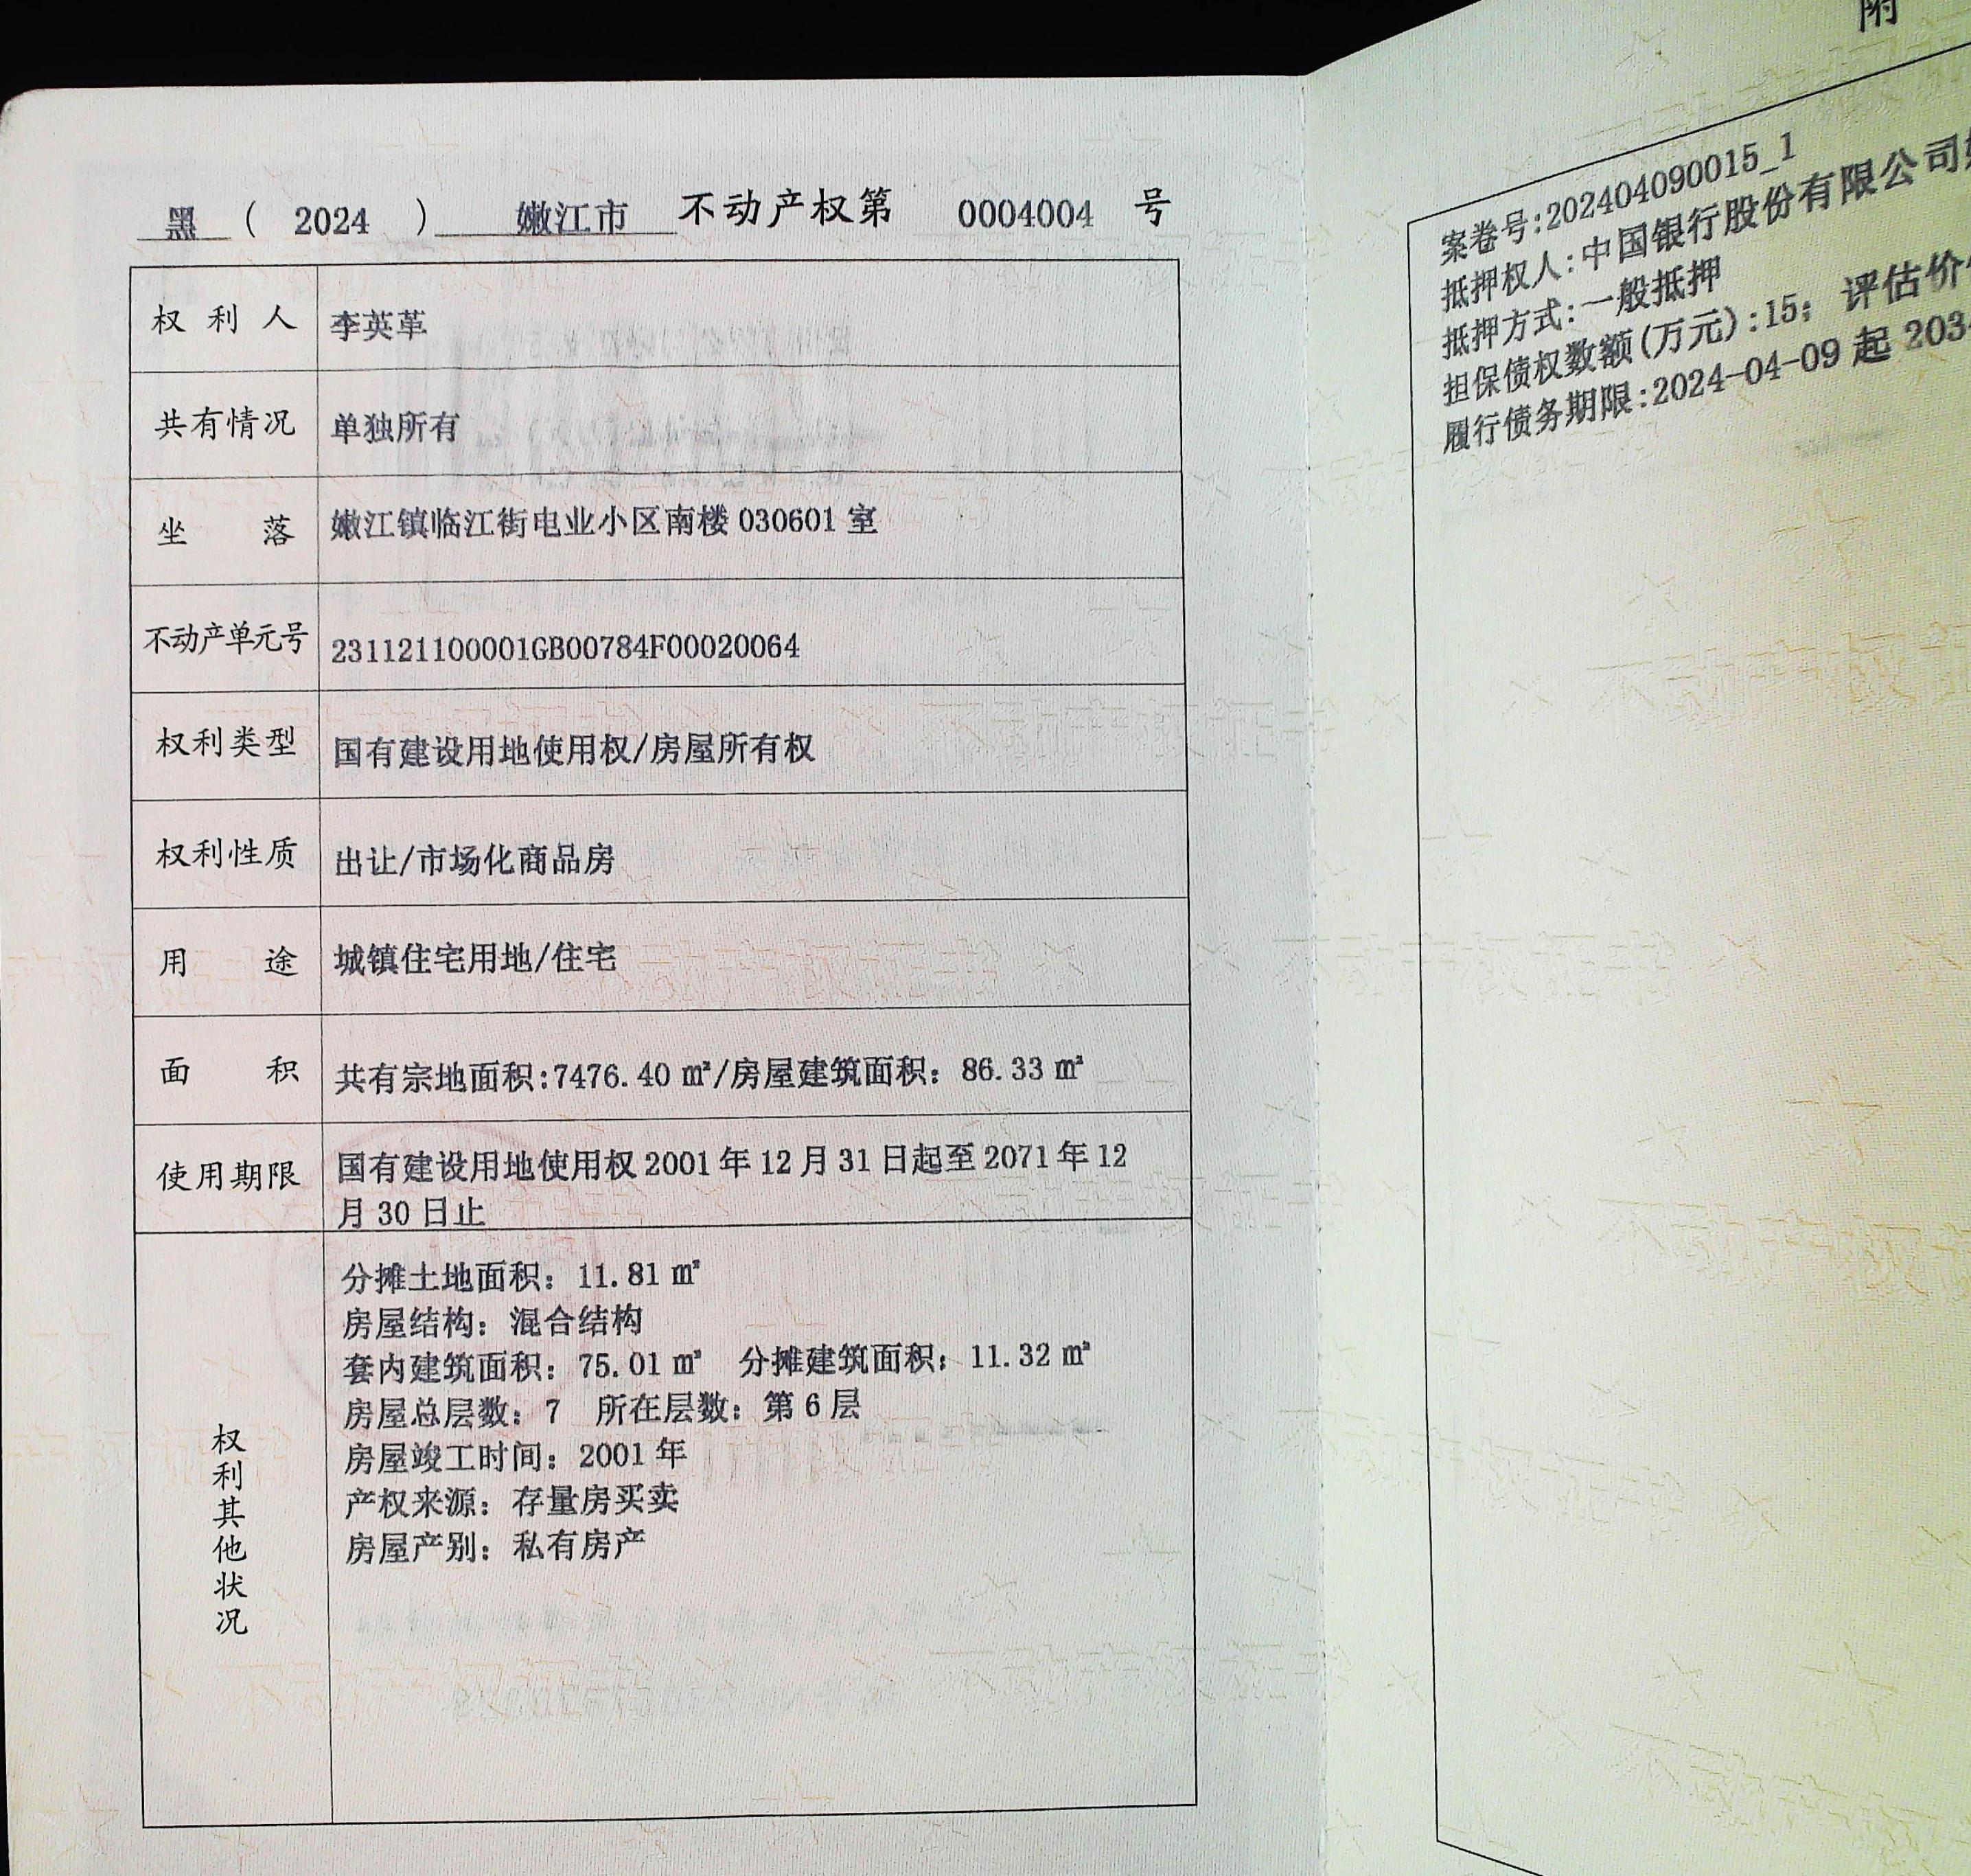 黑 ( 2024 ) 嫩江市 不动产权第 0004004 号
权利人 李英革
共有情况 单独所有
坐落 嫩江镇临江街电业小区南楼 030601 室
不动产单元号 231121100001GB00784F00020064
权利类型 国有建设用地使用权/房屋所有权
权利性质 出让/市场化商品房
用途 城镇住宅用地/住宅
面积 共有宗地面积:7476.40 ㎡/房屋建筑面积：86.33 ㎡
使用期限 国有建设用地使用权 2001 年 12 月 31 日起至 2071 年 12
月 30 日止
权利其他状况
分摊土地面积：11.81 ㎡
房屋结构：混合结构
套内建筑面积：75.01 ㎡ 分摊建筑面积：11.32 ㎡
房屋总层数：7 所在层数：第 6 层
房屋竣工时间：2001 年
产权来源：存量房买卖
房屋产别：私有房产
附
案卷号:202404090015_1
抵押权人:中国银行股份有限公司
抵押方式:一般抵押
担保债权数额(万元):15；评估价
履行债务期限:2024-04-09 起 203